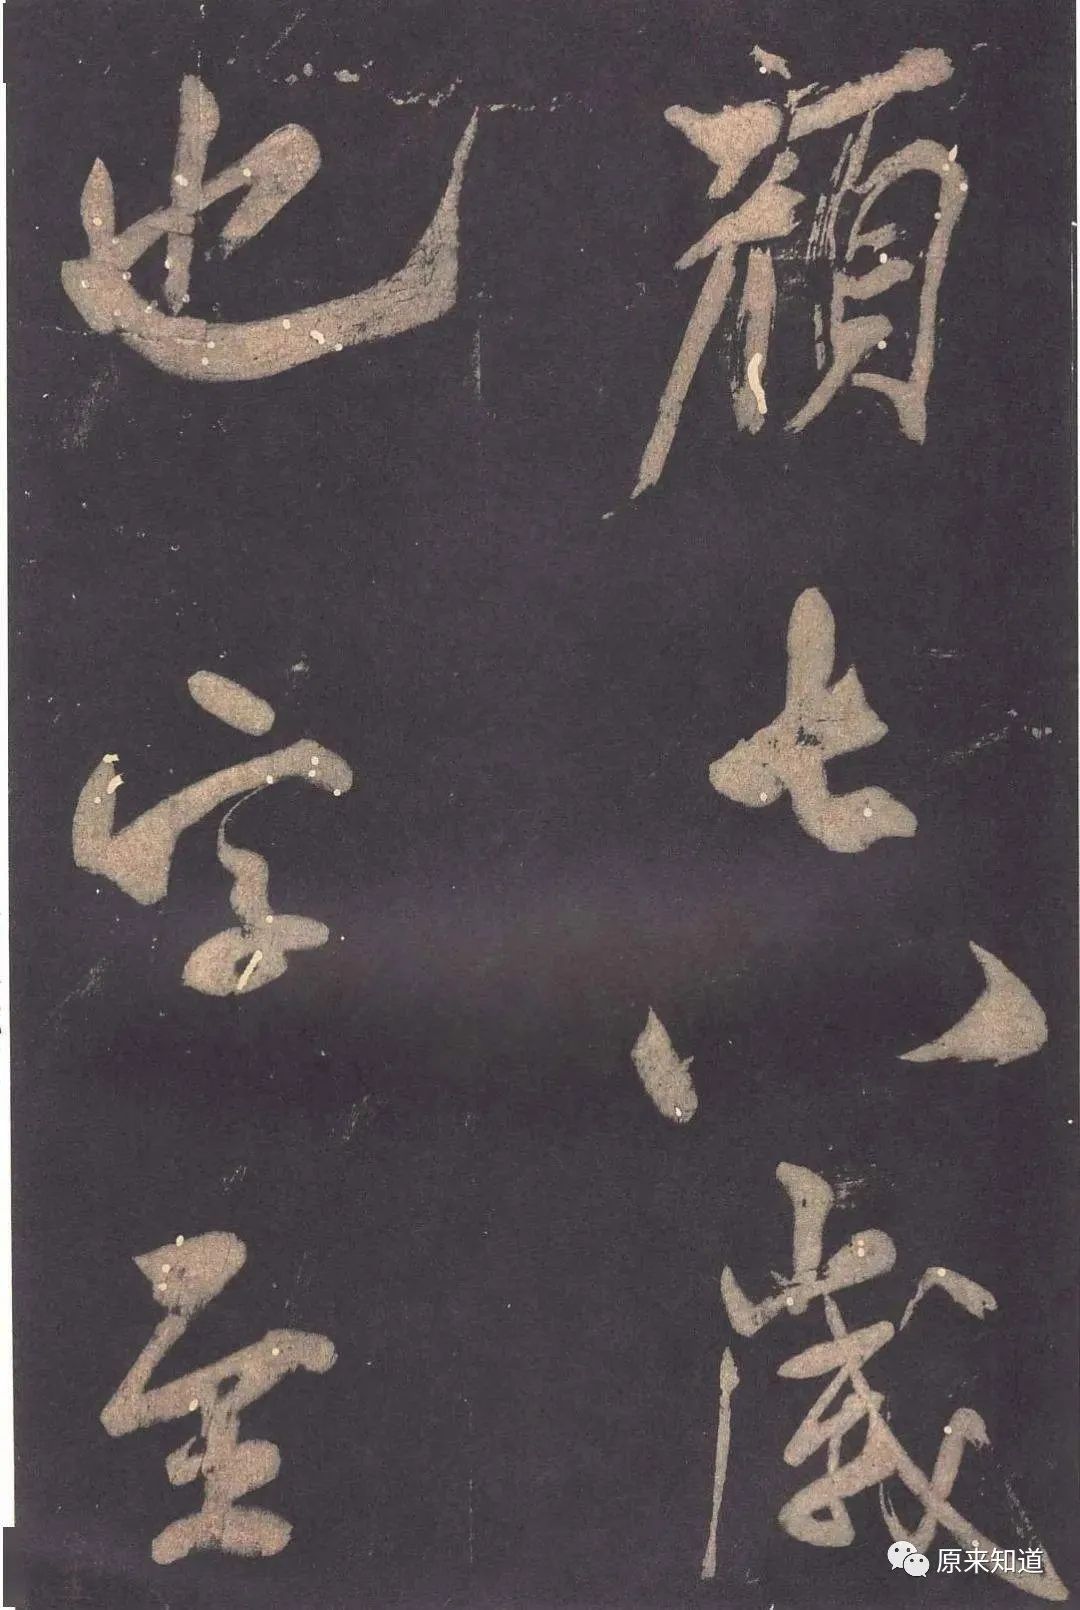 顔七八歲
也字至
原来知道